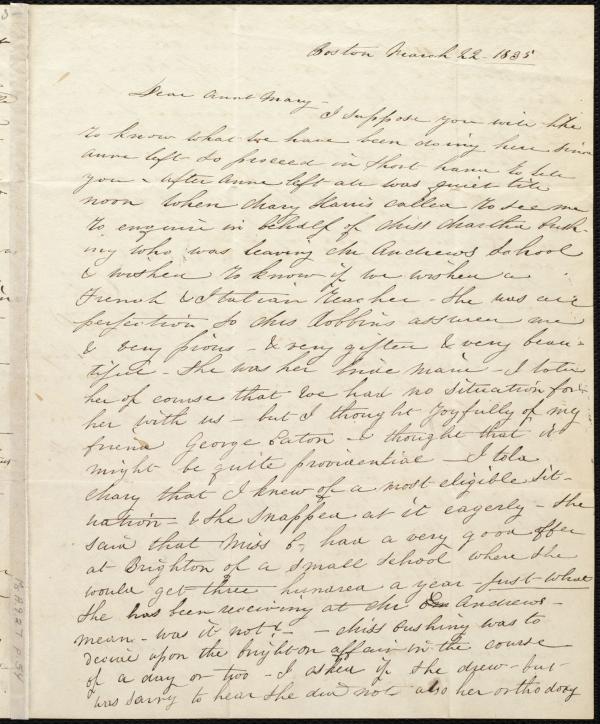 Boston March 22 - 1835
Dear Aunt Mary -
I suppose you will like
to know what we have been doing here since
Anne left - so proceed in short hand to tell
you - after Anne left all was quiet till
noon when Mary Harris called to see me
to enquire in behalf of Miss Martha Cush-
ing who was leaving Mr Andrews School
& wished to know if we wished a
French & Italian teacher - She was all
perfection so Miss Robbins assured me
& very pious - & very gifted & very beau-
tiful - She was her bride maid - I told
her of course that we had no situation for
her with us - but I thought joyfully of my
friend George Eaton - & thought that it
might be quite providential - I told
Mary that I knew of a most eligible sit-
uation - & she snapped at it eagerly - She
said that Miss C. had a very good offer
at Brighton of a small school where she
would get three hundred a year - just what
she has been receiving at Mr Andrews -
mean - was it not? - - Miss Cushing was to
decide upon the Brighton affair in the course
of a day or two - I asked if she drew - but
was sorry to hear she did not also her orthodoxy